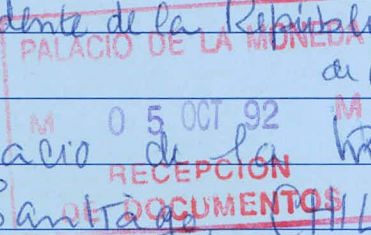 dente de la República
PALACIO DE LA MONEDA
de
M 05 OCT 92 M
acio de la
RECEPCION
DE DOCUMENTOS
Santiago (CHIL